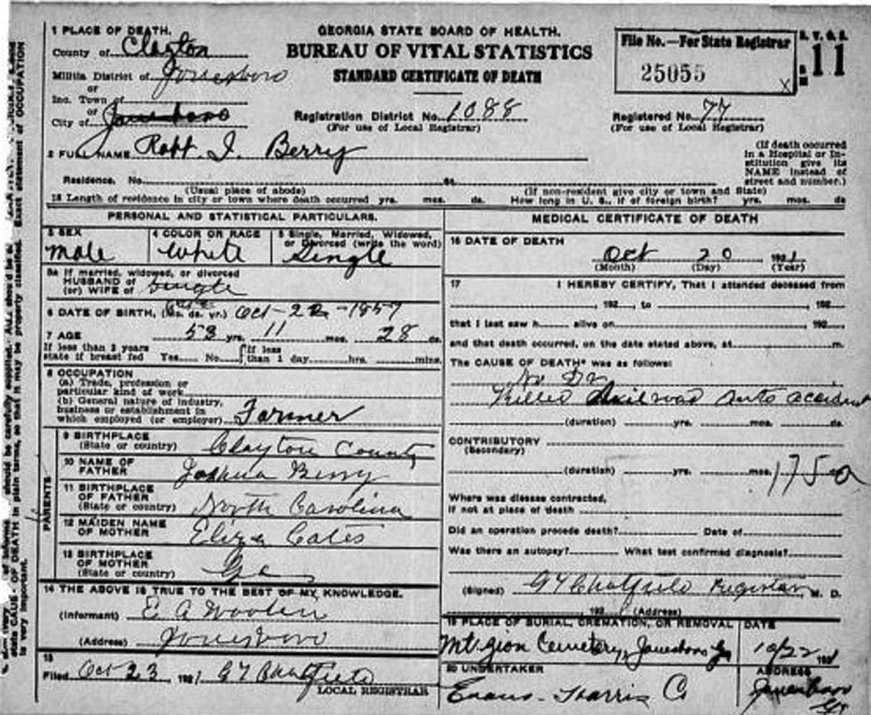 GEORGIA STATE BOARD OF HEALTH.
BUREAU OF VITAL STATISTICS
STANDARD CERTIFICATE OF DEATH
File No.—For State Registrar
25055
11
1 PLACE OF DEATH.
County of Clayton
Militia District of Jonesboro
or
Inc. Town of
or
City of Jonesboro
Registration District No. 1088
(For use of Local Registrar)
Registered No. 77
(For use of Local Registrar)
2 FULL NAME Robt. I. Berry
(If death occurred in a Hospital or Institution give its NAME instead of street and number.)
Residence. No. St.
(Usual place of abode)
(If non-resident give city or town and State)
15 Length of residence in city or town where death occurred yrs. mos. ds. How long in U. S., if of foreign birth? yrs. mos. ds
PERSONAL AND STATISTICAL PARTICULARS.
3 SEX
Male
4 COLOR OR RACE
White
5 Single, Married, Widowed, or Divorced (write the word)
Single
5a If married, widowed, or divorced
HUSBAND of
(or) WIFE of Single
6 DATE OF BIRTH, (Mo. da. yr.) Oct-22-1857
7 AGE 53 yrs. 11 mos. 28 ds.
If less than 2 years state if breast fed Yes No. If less than 1 day hrs. mins.
8 OCCUPATION
(a) Trade, profession or particular kind of work
(b) General nature of industry, business or establishment in which employed (or employer) Farmer
PARENTS
9 BIRTHPLACE
(State or country) Clayton County
10 NAME OF FATHER Joshua Berry
11 BIRTHPLACE OF FATHER
(State or country) North Carolina
12 MAIDEN NAME OF MOTHER Eliza Cates
13 BIRTHPLACE OF MOTHER
(State or country) Ga
14 THE ABOVE IS TRUE TO THE BEST OF MY KNOWLEDGE.
(Informant) E. A.
(Address) Jonesboro
15
Filed Oct 23 1921
LOCAL REGISTRAR
MEDICAL CERTIFICATE OF DEATH
16 DATE OF DEATH
Oct 20 1921
(Month) (Day) (Year)
17 I HEREBY CERTIFY, That I attended deceased from
192 , to 192
that I last saw h alive on 192
and that death occurred, on the date stated above, at m.
The CAUSE OF DEATH* was as follows:
No Dr
Killed Railroad Auto accident
(duration) yrs. mos. ds.
CONTRIBUTORY
(Secondary)
(duration) yrs. mos. ds.
175 a
Where was disease contracted,
if not at place of death
Did an operation precede death? Date of
Was there an autopsy? What test confirmed diagnosis?
(Signed) Registrar M. D.
192 (Address)
19 PLACE OF BURIAL, CREMATION, OR REMOVAL
Mt. Zion Cemetery, Jonesboro Ga
DATE
10/22 1921
20 UNDERTAKER
Harris Co
ADDRESS
Jonesboro Ga